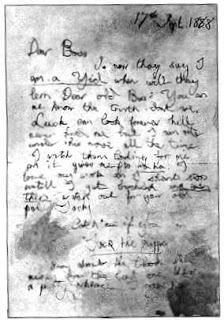 17th Sept. 1888
Dear Boss
So now they say I
am a Yid when will they
lern Dear old Boss? You an
me know the truth dont we.
Lusk can look forever hell
never find me but I am rite
under his nose all the time
I watch them looking for me
an it gives me fits ha ha I
love my work an I shant stop
untill I get buckled and even
then watch out for your old
pal Jacky
Catch me if you
Jack the Ripper
about the blood
from the last
a pretty